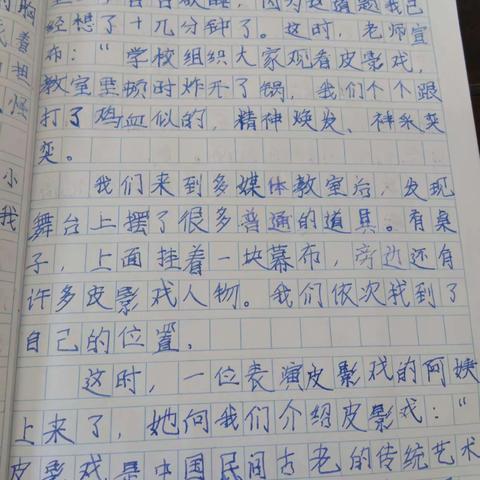 经想了十几分钟了。这时，老师宣
布：“学校组织大家观看皮影戏，
教室里顿时炸开了锅，我们个个跟
打了鸡血似的，精神焕发、神采奕
奕。
我们来到多媒体教室后，发现
舞台上摆了很多普通的道具。有桌
子，上面挂着一块幕布，旁边还有
许多皮影戏人物。我们依次找到了
自己的位置，
这时，一位表演皮影戏的阿姨
上来了，她向我们介绍皮影戏：“
皮影戏是中国民间古老的传统艺术